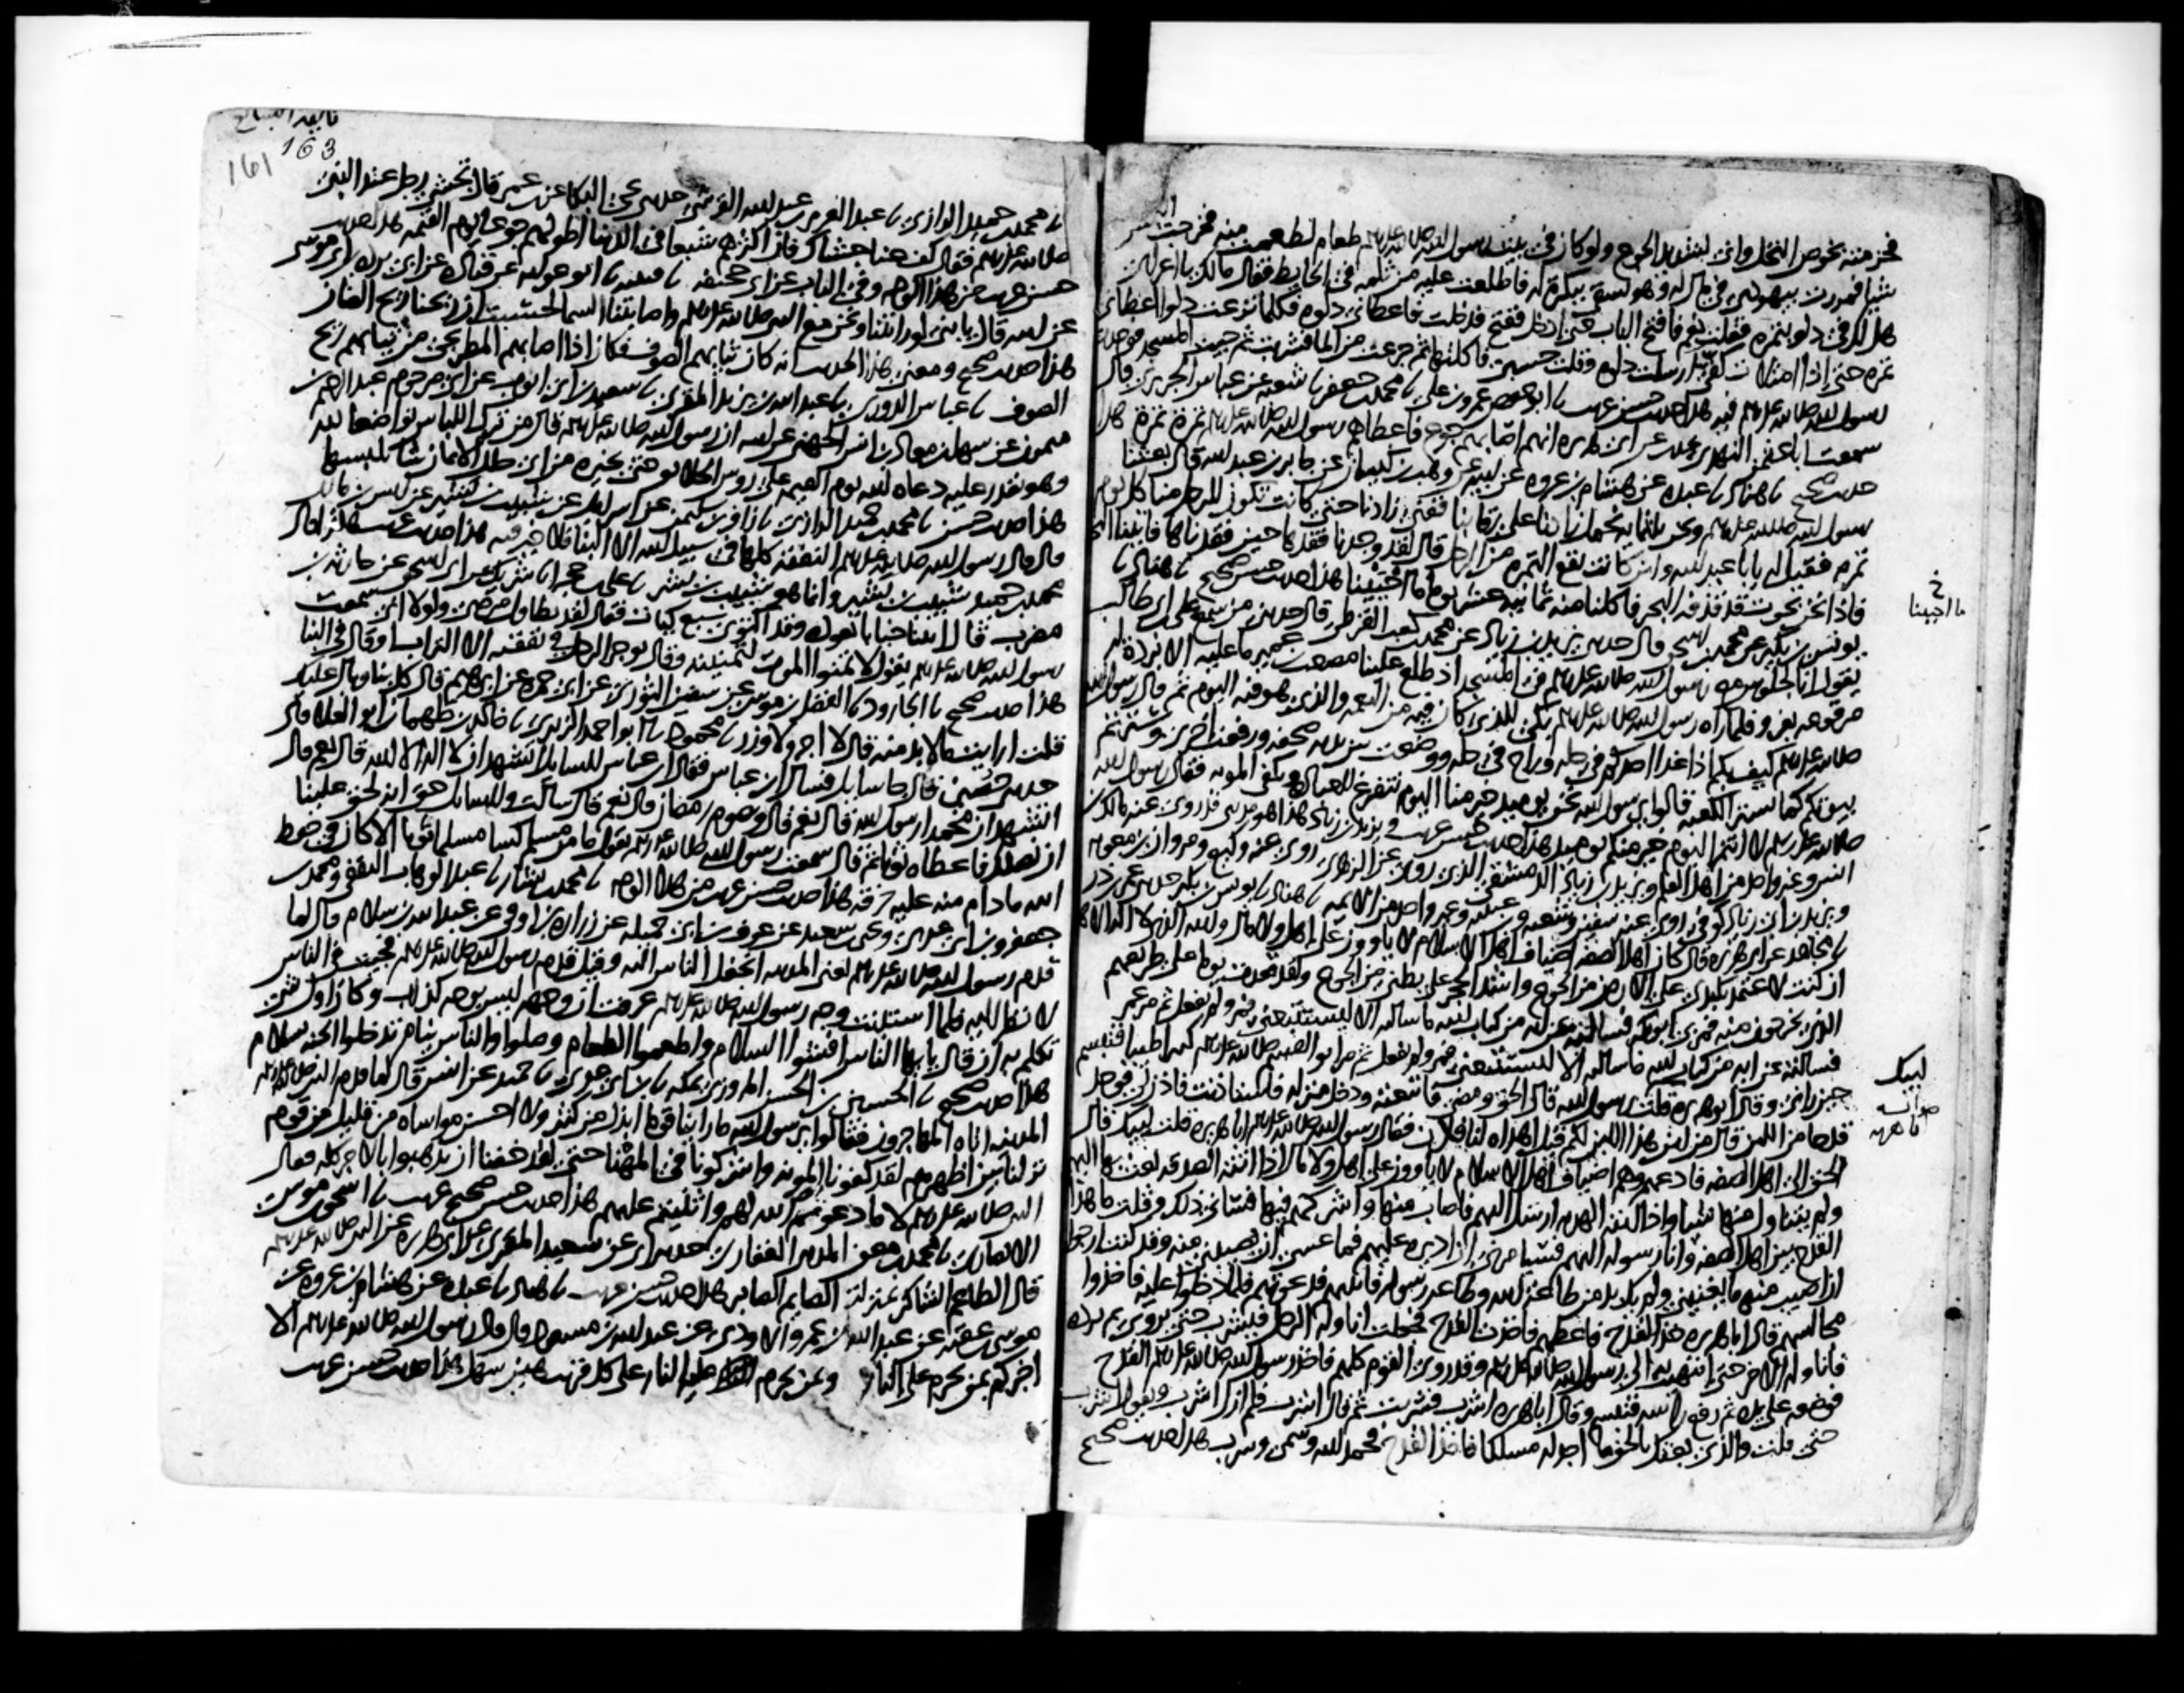 فحزمته بخوص النخل واني لشديد الجوع ولو كان في بيت رسول الله صلى الله عليه وسلم طعام لطعمت منه فخرجت التمس
شيا فمررت بيهودي في مال له وهو يسقي ببكرة له فاطلعت عليه من ثلمة في الحايط فقال مالك يا اعرابي
هل لك في دلو بتمرة فقلت نعم فافتح الباب حتى ادخل ففتح فدخلت فاعطاني دلوه فكلما نزعت دلوا اعطاني
تمرة حتى اذا امتلات كفي ارسلت دلوه وقلت حسبي فاكلتها ثم جرعت من الما فشربت ثم جيت المسجد فوجدت
رسول الله صلى الله عليه وسلم فيه هذا حديث حسن غريب نا ابو حفص عمرو بن علي نا محمد بن جعفر نا شعبة عن عباس الجريري قال
سمعت ابا عثمن النهدي يحدث عن ابي هريرة انهم اصابهم جوع فاعطاهم رسول الله صلى الله عليه وسلم تمرة تمرة هذا
حديث صحيح نا هناد نا عبدة عن هشام بن عروة عن ابيه عن وهب بن كيسان عن جابر بن عبد الله قال بعثنا
رسول الله صلى الله عليه وسلم ونحن ثلثماية نحمل زادنا على رقابنا ففني زادنا حتى كانت تكون للرجل منا كل يوم
تمرة فقيل له يا با عبد الله واين كانت تقع التمرة من الرجل قال لقد وجدنا فقدها حين فقدناها فاتينا البحر
فاذا نحن بحوت قد قذفه البحر فاكلنا منه ثمانية عشر يوما ما احببنا هذا حديث حسن صحيح نا هناد نا
ما احببنا
يونس بن بكير عن محمد بن اسحق قال حدثني يزيد بن زياد عن محمد بن كعب القرظي قال حدثني من سمع علي بن ابي طالب
يقول انا لجلوس مع رسول الله صلى الله عليه وسلم في المسجد اذ طلع علينا مصعب بن عمير ما عليه الا بردة له
مرقوعة بفرو فلما راه رسول الله صلى الله عليه وسلم بكى للذي كان فيه من النعمة والذي هو فيه اليوم ثم قال رسول الله
صلى الله عليه وسلم كيف بكم اذا غدا احدكم في حلة وراح في حلة ووضعت بين يديه صحفة ورفعت اخرى وسترتم
بيوتكم كما تستر الكعبة قالوا يا رسول الله نحن يوميذ خير منا اليوم نتفرغ للعبادة ونكفى المونة فقال رسول الله
صلى الله عليه وسلم لا انتم اليوم خير منكم يوميذ هذا حديث حسن غريب ويزيد بن زياد هذا هو مديني قد روى عنه مالك بن
انس وغير واحد من اهل العلم ويزيد بن زياد الدمشقي الذي روى عن الزهري روى عنه وكيع ومروان بن معوية
ويزيد بن ابي زياد كوفي روى عنه سفين وشعبة وابن عيينة وغير واحد من الايمة نا هناد نا يونس بن بكير حدثني عمر بن ذر
نا مجاهد عن ابي هريرة قال كان اهل الصفة اضياف اهل الاسلام لا ياوون على اهل ولا مال والله الذي لا اله الا هو
ان كنت لاعتمد بكبدي على الارض من الجوع واشد الحجر على بطني من الجوع ولقد قعدت يوما على طريقهم
الذي يخرجون منه فمر بي ابو بكر فسالته عن اية من كتاب الله ما سالته الا ليستتبعني فمر ولم يفعل ثم مر عمر
فسالته عن اية من كتاب الله ما سالته الا ليستتبعني فمر ولم يفعل ثم مر ابو القسم صلى الله عليه وسلم فتبسم
حين راني وقال ابو هريرة قلت لبيك رسول الله قال الحق ومضى فاتبعته ودخل منزله فاستاذنت فاذن لي فوجد
لبيك
قدحا من اللبن قال من اين هذا اللبن لكم قيل اهداه لنا فلان فقال رسول الله صلى الله عليه وسلم ابا هريرة قلت لبيك قال
الحق الى اهل الصفة فادعهم وهم اضياف اهل الاسلام لا ياوون على اهل ولا مال اذا اتته الصدقة بعث بها اليهم
ولم يتناول منها شيا واذا اتته الهدية ارسل اليهم فاصاب منها واشركهم فيها فساني ذلك وقلت ما هذا
القدح بين اهل الصفة وانا رسوله اليهم فسيامرني ان اديره عليهم فما عسى ان يصيبني منه وقد كنت ارجوا
ان اصيب منه ما يغنيني ولم يك بد من طاعة الله وطاعة رسوله فاتيتهم فدعوتهم فلما دخلوا عليه فاخذوا
مجالسهم قال ابا هريرة خذ القدح فاعطهم فاخذت القدح فجعلت اناوله الرجل فيشرب حتى يروى ثم يرده
فاناوله الاخر حتى انتهيت الى رسول الله صلى الله عليه وسلم وقد روي القوم كلهم فاخذ رسول الله صلى الله عليه وسلم القدح
فوضعه على يده ثم رفع راسه فتبسم وقال ابا هريرة اشرب فشربت ثم قال اشرب فلم ازل اشرب ويقول اشرب
حتى قلت والذي بعثك بالحق ما اجد له مسلكا فاخذ القدح فحمد الله وسمى وشرب هذا حديث صحيح
163
161
نا محمد بن حميد الرازي نا عبد العزيز بن عبد الله القرشي حدثني يحيى البكا عن ابن عمر قال تجشى رجل عند النبي
صلى الله عليه وسلم فقال كف عنا جشاك فان اكثرهم شبعا في الدنيا اطولهم جوعا يوم القيمة هذا حديث
حسن غريب من هذا الوجه وفي الباب عن ابي جحيفة نا قتيبة نا ابو عوانة عن قتادة عن ابي بردة بن ابي موسى
عن ابيه قال يا بني لو رايتنا ونحن مع النبي صلى الله عليه وسلم واصابتنا السما لحسبت ان ريحنا ريح الضان
هذا حديث صحيح ومعنى هذا الحديث انه كان ثيابهم الصوف فكان اذا اصابهم المطر يجي من ثيابهم ريح
الصوف نا عباس الدوري نا عبد الله بن يزيد المقري نا سعيد بن ابي ايوب عن ابي مرحوم عبد الرحيم بن
ميمون عن سهل بن معاذ بن انس الجهني عن ابيه ان رسول الله صلى الله عليه وسلم قال من ترك اللباس تواضعا لله
وهو يقدر عليه دعاه الله يوم القيمة على روس الخلايق حتى يخيره من اي حلل الايمان شا يلبسها
هذا حديث حسن نا محمد بن حميد الرازي نا زافر بن سليمن عن اسرايل عن شبيب بن بشير عن انس بن مالك
قال قال رسول الله صلى الله عليه وسلم النفقة كلها في سبيل الله الا البنا فلا خير فيه هذا حديث غريب هكذا قال
محمد بن حميد شبيب بن بشير وانما هو شبيب بن بشر نا علي بن حجر نا شريك عن ابي اسحق عن حارثة بن
مضرب قال اتينا خبابا نعوده وقد اكتوى سبع كيات فقال لقد تطاول مرضي ولولا اني سمعت
رسول الله صلى الله عليه وسلم يقول لا تمنوا الموت لتمنيته وقال يوجر الرجل في نفقته الا التراب او قال في البنا
هذا حديث صحيح نا الجارود نا الفضل بن موسى عن سفين الثوري عن ابي حمزة عن ابرهيم قال كل بنا وبال عليك
قلت ارايت ما لا بد منه قال لا اجر ولا وزر نا محمود نا ابو احمد الزبيري نا خالد بن طهمان ابو العلا قال
حدثني حصين قال جا سايل فسال ابن عباس فقال ابن عباس للسايل اتشهد ان لا اله الا الله قال نعم قال
اتشهد ان محمدا رسول الله قال نعم قال وتصوم رمضان قال نعم قال سالت وللسايل حق انه لحق علينا
ان نصلك فاعطاه ثوبا ثم قال سمعت رسول الله صلى الله عليه وسلم يقول ما من مسلم كسا مسلما ثوبا الا كان في حفظ
الله ما دام منه عليه خرقة هذا حديث حسن غريب من هذا الوجه نا محمد بن بشار نا عبد الوهاب الثقفي ومحمد بن
جعفر وابن ابي عدي ويحيى بن سعيد عن عوف بن ابي جميلة عن زرارة بن اوفى عن عبد الله بن سلام قال لما
قدم رسول الله صلى الله عليه وسلم يعني المدينة انجفل الناس اليه وقيل قدم رسول الله صلى الله عليه وسلم فجيت في الناس
لانظر اليه فلما استبنت وجه رسول الله صلى الله عليه وسلم عرفت ان وجهه ليس بوجه كذاب وكان اول شي
تكلم به ان قال يا ايها الناس افشوا السلام واطعموا الطعام وصلوا والناس نيام تدخلوا الجنة بسلام
هذا حديث صحيح نا الحسين بن الحسن المروزي بمكة نا ابن ابي عدي نا حميد عن انس قال لما قدم النبي صلى الله عليه وسلم
المدينة اتاه المهاجرون فقالوا يا رسول الله ما راينا قوما ابذل من كثير ولا احسن مواساة من قليل من قوم
نزلنا بين اظهرهم لقد كفونا المونة واشركونا في المهنا حتى لقد خفنا ان يذهبوا بالاجر كله فقال
النبي صلى الله عليه وسلم لا ما دعوتم الله لهم واثنيتم عليهم هذا حديث حسن صحيح غريب نا اسحق بن موسى
الانصاري نا محمد بن معن المديني الغفاري حدثني ابي عن سعيد المقبري عن ابي هريرة عن النبي صلى الله عليه وسلم
قال الطاعم الشاكر بمنزلة الصايم الصابر هذا حديث حسن غريب نا هناد نا عبدة عن هشام بن عروة عن
موسى بن عقبة عن عبد الله بن عمرو الاودي عن عبد الله بن مسعود قال قال رسول الله صلى الله عليه وسلم الا
اخبركم بمن يحرم على النار وبمن يحرم عليه النار على كل قريب هين سهل هذا حديث حسن غريب